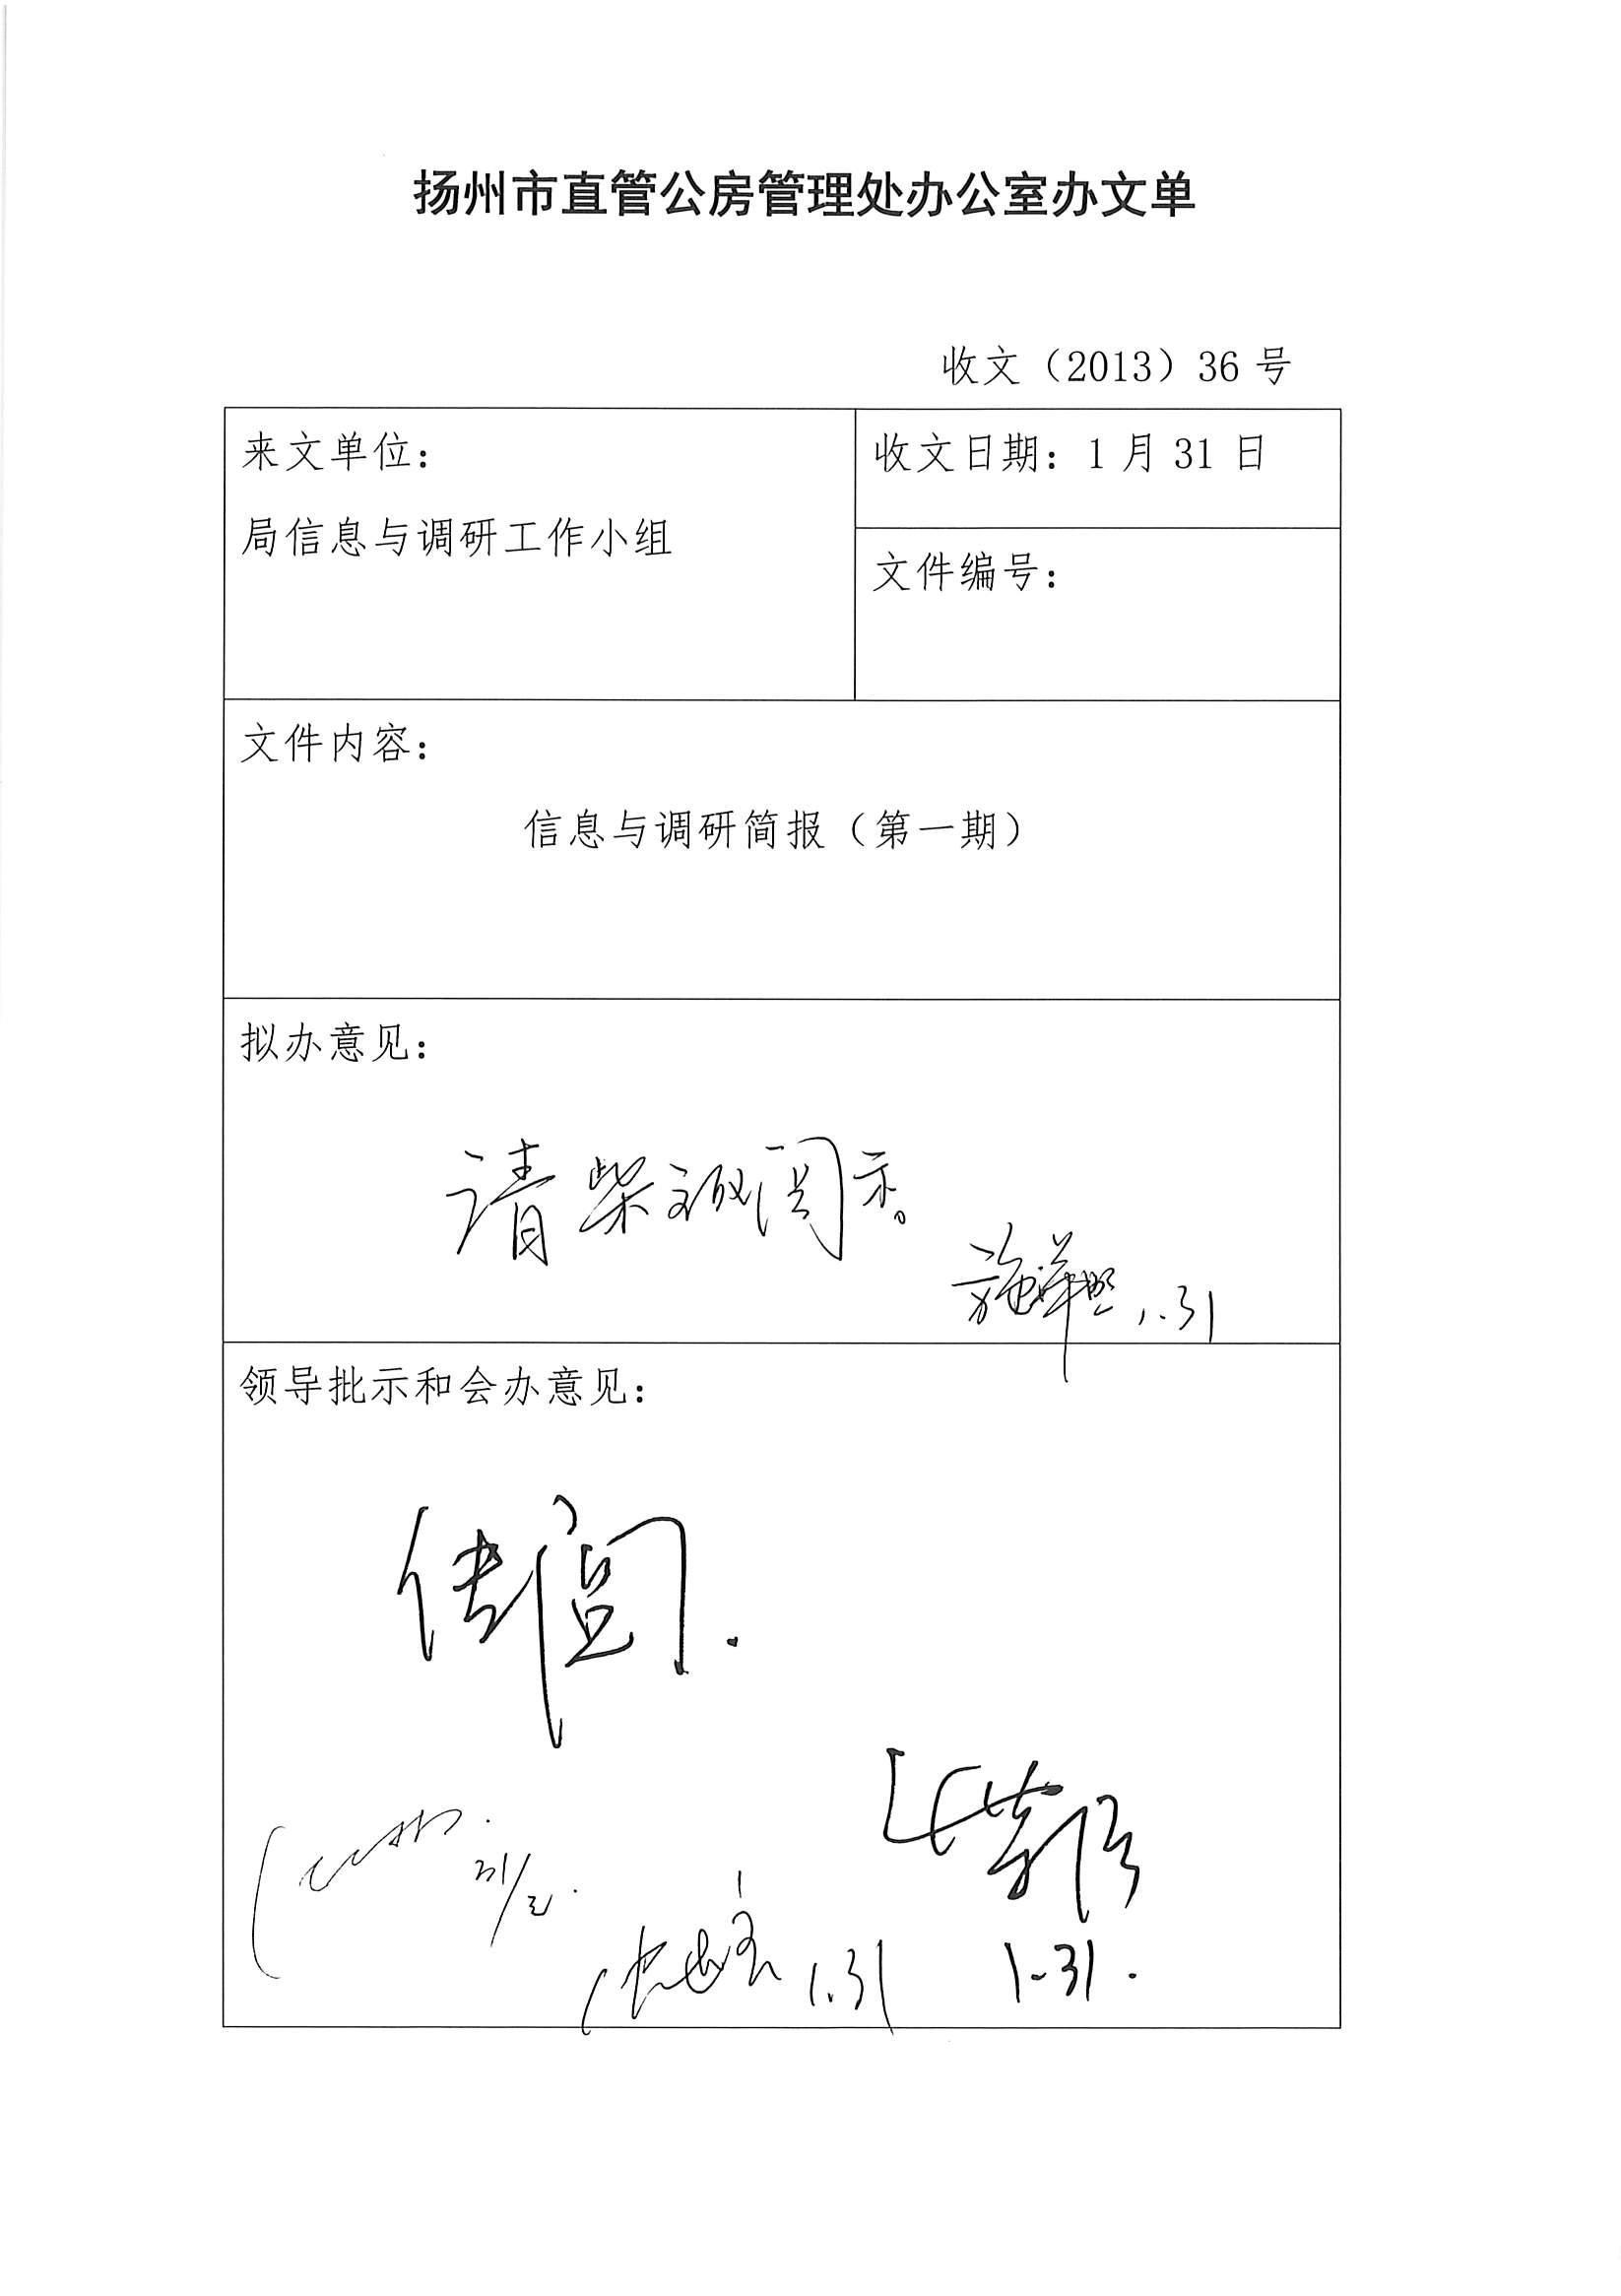 扬州市直管公房管理处办公室办文单
收文（2013）36 号
来文单位：
局信息与调研工作小组
收文日期：1 月 31 日
文件编号：
文件内容：
信息与调研简报（第一期）
拟办意见：
请柴 阅示。
1.31
领导批示和会办意见：
传阅.
31/
1.31
1.31.